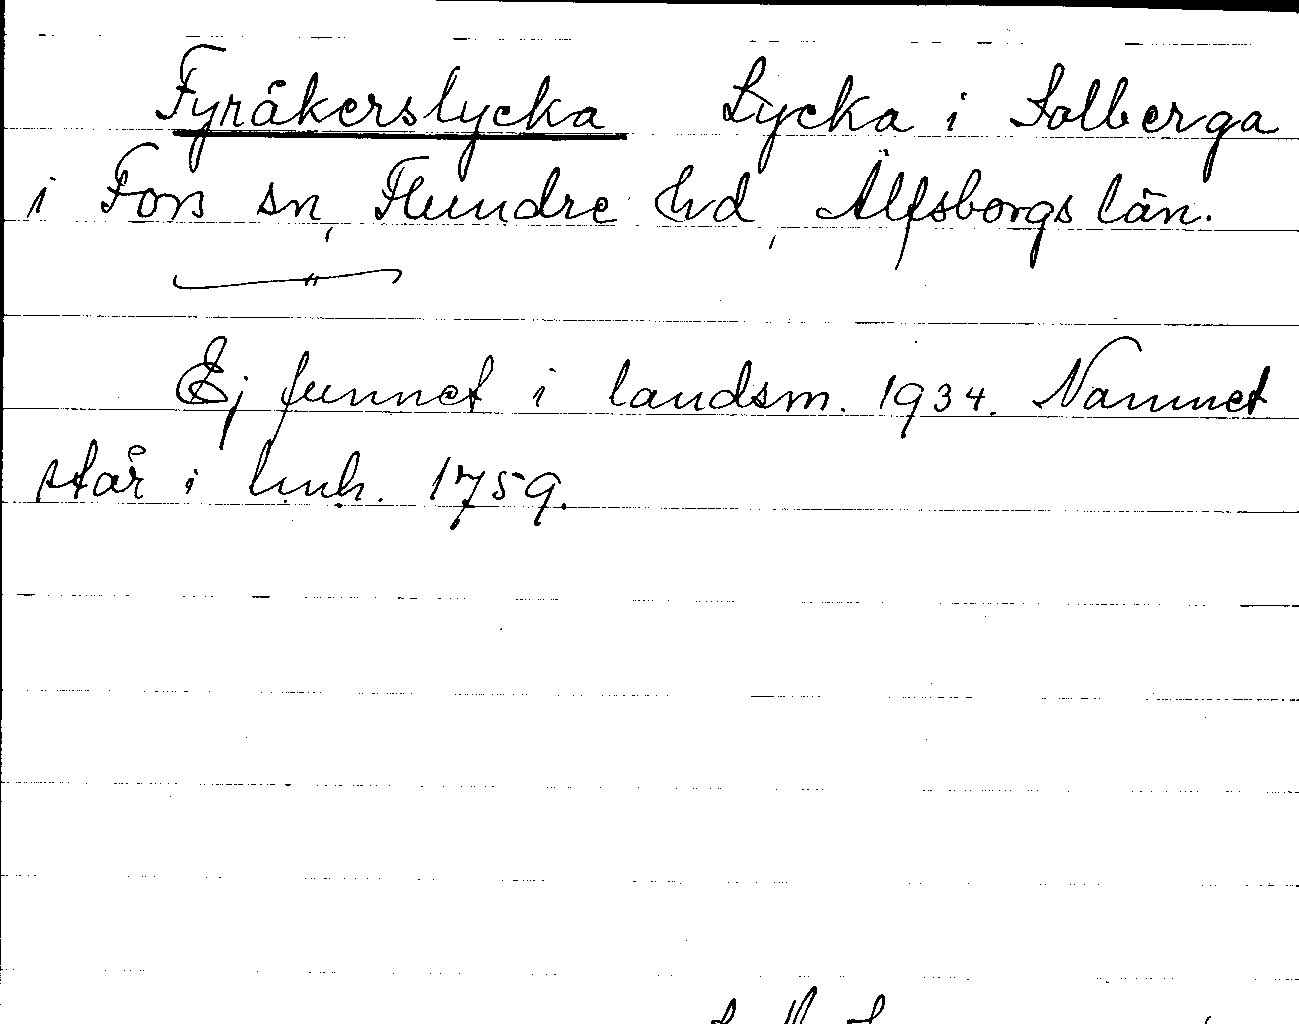 Fyråkerslycka Lycka i Solberga
i Fors sn, Flundre hd, Älfsborgs län.
"
Ej funnet i landsm. 1934. Namnet
står i lmh. 1759.